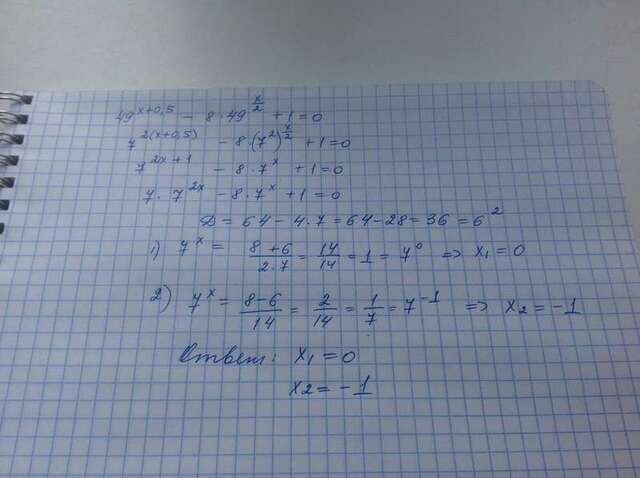 49^{x+0,5} - 8·49^{x/2} + 1 = 0
7^{2(x+0,5)} - 8·(7^2)^{x/2} + 1 = 0
7^{2x+1} - 8·7^x + 1 = 0
7·7^{2x} - 8·7^x + 1 = 0
D = 64 - 4·7 = 64 - 28 = 36 = 6^2
1) 7^x = (8+6)/(2·7) = 14/14 = 1 = 7^0 => x₁ = 0
2) 7^x = (8-6)/14 = 2/14 = 1/7 = 7^{-1} => x₂ = -1
Ответ: x₁ = 0
x₂ = -1